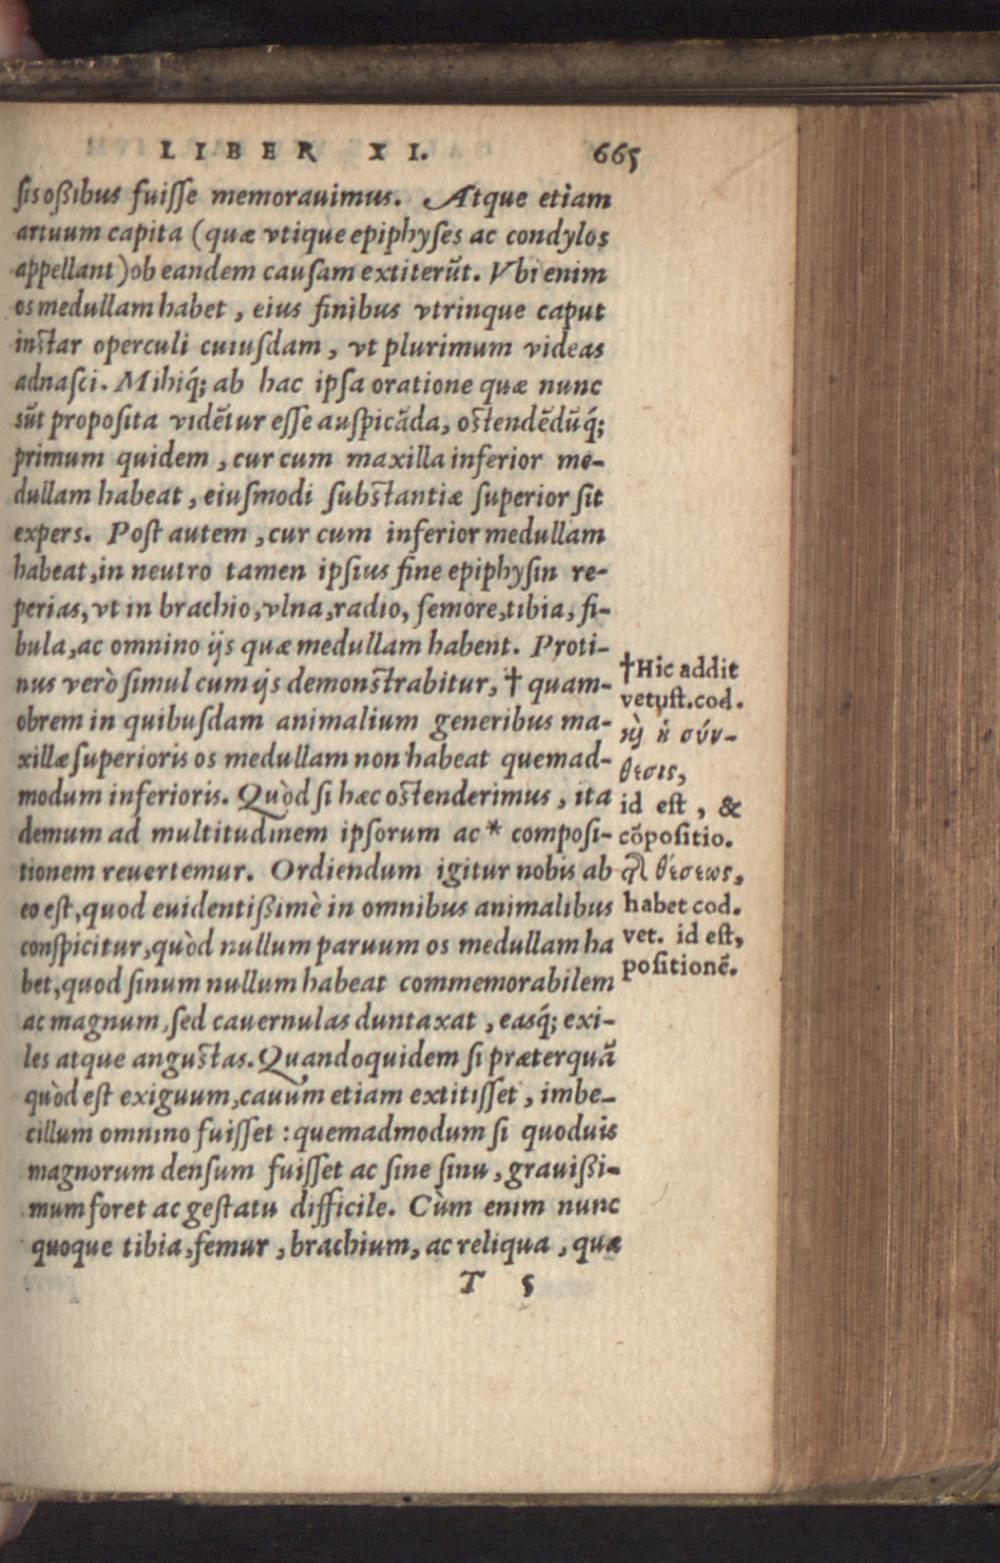 LIBER XI. 665
sis oßibus fuisse memorauimus. Atque etiam
artuum capita (quæ vtique epiphyses ac condylos
appellant) ob eandem causam extiterūt. Vbi enim
os medullam habet, eius finibus vtrinque caput
instar operculi cuiusdam, vt plurimum videas
adnasci. Mihiq́; ab hac ipsa oratione quæ nunc
sūt proposita vidētur esse auspicāda, ostendēdūq́;
primum quidem, cur cum maxilla inferior me-
dullam habeat, eiusmodi substantiæ superior sit
expers. Post autem, cur cum inferior medullam
habeat, in neutro tamen ipsius fine epiphysin re-
perias, vt in brachio, vlna, radio, femore, tibia, fi-
bula, ac omnino ijs quæ medullam habent. Proti-
nus verò simul cum ijs demonstrabitur, † quam-
obrem in quibusdam animalium generibus ma-
xillæ superioris os medullam non habeat quemad-
modum inferioris. Quòd si hæc ostenderimus, ita
demum ad multitudinem ipsorum ac * composi-
tionem reuertemur. Ordiendum igitur nobis ab
eo est, quod euidentißimè in omnibus animalibus
conspicitur, quòd nullum paruum os medullam ha
bet, quod sinum nullum habeat commemorabilem
ac magnum, sed cauernulas duntaxat, easq́; exi-
les atque angustas. Quandoquidem si præterquā
quòd est exiguum, cauum etiam extitisset, imbe-
cillum omnino fuisset: quemadmodum si quoduis
magnorum densum fuisset ac sine sinu, grauißi-
mum foret ac gestatu difficile. Cùm enim nunc
quoque tibia, femur, brachium, ac reliqua, quæ
T 5
†Hic addit
vetust. cod.
καὶ ἡ σύν-
θεσις,
id est, &
cōpositio.
θέσεως,
habet cod.
vet. id est,
positionē.